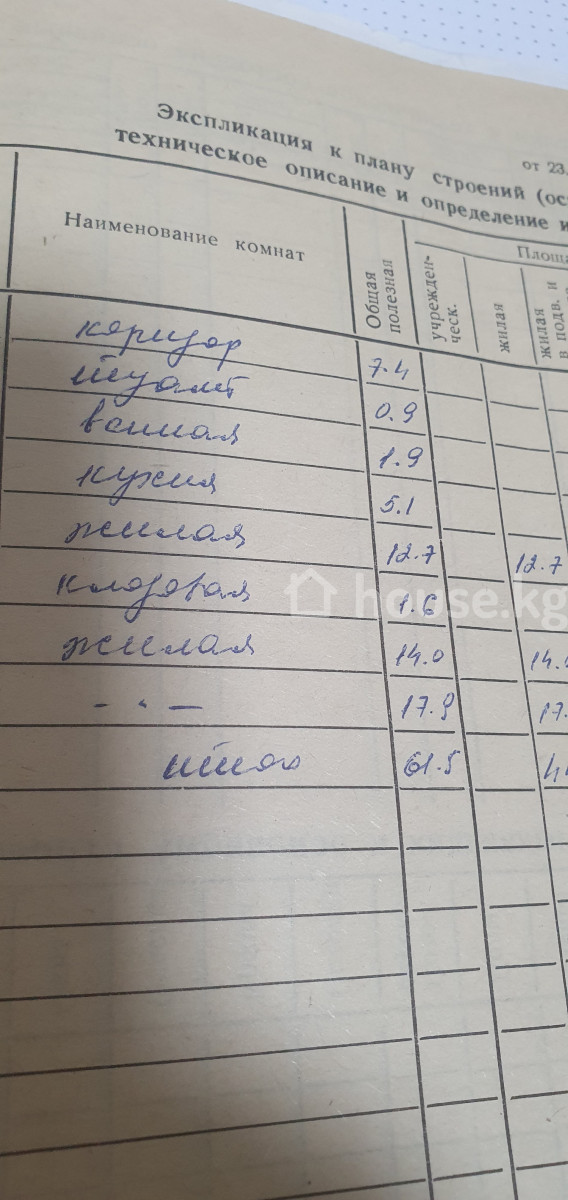 Экспликация к плану строений (ос
от 23.
техническое описание и определение и
Наименование комнат
Общая полезная
Площа
учрежден-
ческ.
жилая
жилая
в подв. и
коридор 7.4
туалет 0.9
ванная 1.9
кухня 5.1
жилая 12.7 12.7
кладовая 1.6
жилая 14.0 14.
– " – 17.9 17.
итого 61.5 4
house.kg